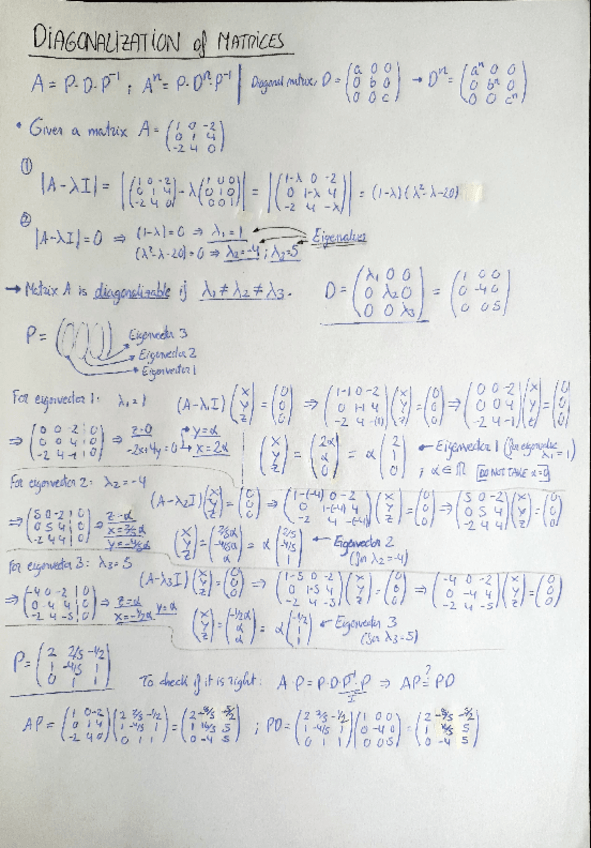 DIAGONALIZATION of MATRICES
A = P·D·P⁻¹ ; Aⁿ = P·Dⁿ·P⁻¹ | Diagonal matrix, D = (a 0 0 / 0 b 0 / 0 0 c) → Dⁿ = (aⁿ 0 0 / 0 bⁿ 0 / 0 0 cⁿ)
• Given a matrix A = (1 0 -2 / 0 1 4 / -2 4 0)
①
|A-λI| = |(1 0 -2 / 0 1 4 / -2 4 0) - λ(1 0 0 / 0 1 0 / 0 0 1)| = |(1-λ 0 -2 / 0 1-λ 4 / -2 4 -λ)| = (1-λ)(λ²-λ-20)
②
|A-λI| = 0 ⇒ (1-λ) = 0 ⇒ λ₁ = 1
(λ²-λ-20) = 0 ⇒ λ₂ = -4 ; λ₃ = 5 Eigenvalues
→ Matrix A is diagonalizable if λ₁ ≠ λ₂ ≠ λ₃. D = (λ₁ 0 0 / 0 λ₂ 0 / 0 0 λ₃) = (1 0 0 / 0 -4 0 / 0 0 5)
P = ( ) Eigenvector 3
Eigenvector 2
Eigenvector 1
For eigenvector 1: λ₁ = 1 (A-λ₁I)(x / y / z) = (0 / 0 / 0) ⇒ (1-1 0 -2 / 0 1-1 4 / -2 4 -(1))(x / y / z) = (0 / 0 / 0) ⇒ (0 0 -2 / 0 0 4 / -2 4 -1)(x / y / z) = (0 / 0 / 0)
⇒ (0 0 -2 | 0 / 0 0 4 | 0 / -2 4 -1 | 0) ⇒ z=0 / -2x+4y=0 → y=α / x=2α (x / y / z) = (2α / α / 0) = α(2 / 1 / 0) ← Eigenvector 1 (for eigenvalue λ₁=1)
; α ∈ ℝ DO NOT TAKE α=0
For eigenvector 2: λ₂ = -4 (A-λ₂I)(x / y / z) = (0 / 0 / 0) ⇒ (1-(-4) 0 -2 / 0 1-(-4) 4 / -2 4 -(-4))(x / y / z) = (0 / 0 / 0) ⇒ (5 0 -2 / 0 5 4 / -2 4 4)(x / y / z) = (0 / 0 / 0)
⇒ (5 0 -2 | 0 / 0 5 4 | 0 / -2 4 4 | 0) ⇒ z=α / x=2/5α / y=-4/5α (x / y / z) = (2/5α / -4/5α / α) = α(2/5 / -4/5 / 1) ← Eigenvector 2
(for λ₂=-4)
For eigenvector 3: λ₃ = 5 (A-λ₃I)(x / y / z) = (0 / 0 / 0) ⇒ (1-5 0 -2 / 0 1-5 4 / -2 4 -5)(x / y / z) = (0 / 0 / 0) ⇒ (-4 0 -2 / 0 -4 4 / -2 4 -5)(x / y / z) = (0 / 0 / 0)
⇒ (-4 0 -2 | 0 / 0 -4 4 | 0 / -2 4 -5 | 0) ⇒ z=α y=α / x=-1/2α (x / y / z) = (-1/2α / α / α) = α(-1/2 / 1 / 1) ← Eigenvector 3
(for λ₃=5)
P = (2 2/5 -1/2 / 1 -4/5 1 / 0 1 1) To check if it is right: A·P = P·D·P⁻¹·P ⇒ AP ≟ PD
I
AP = (1 0 -2 / 0 1 4 / -2 4 0)(2 2/5 -1/2 / 1 -4/5 1 / 0 1 1) = (2 -8/5 -5/2 / 1 16/5 5 / 0 -4 5) ; PD = (2 2/5 -1/2 / 1 -4/5 1 / 0 1 1)(1 0 0 / 0 -4 0 / 0 0 5) = (2 -8/5 -5/2 / 1 16/5 5 / 0 -4 5)